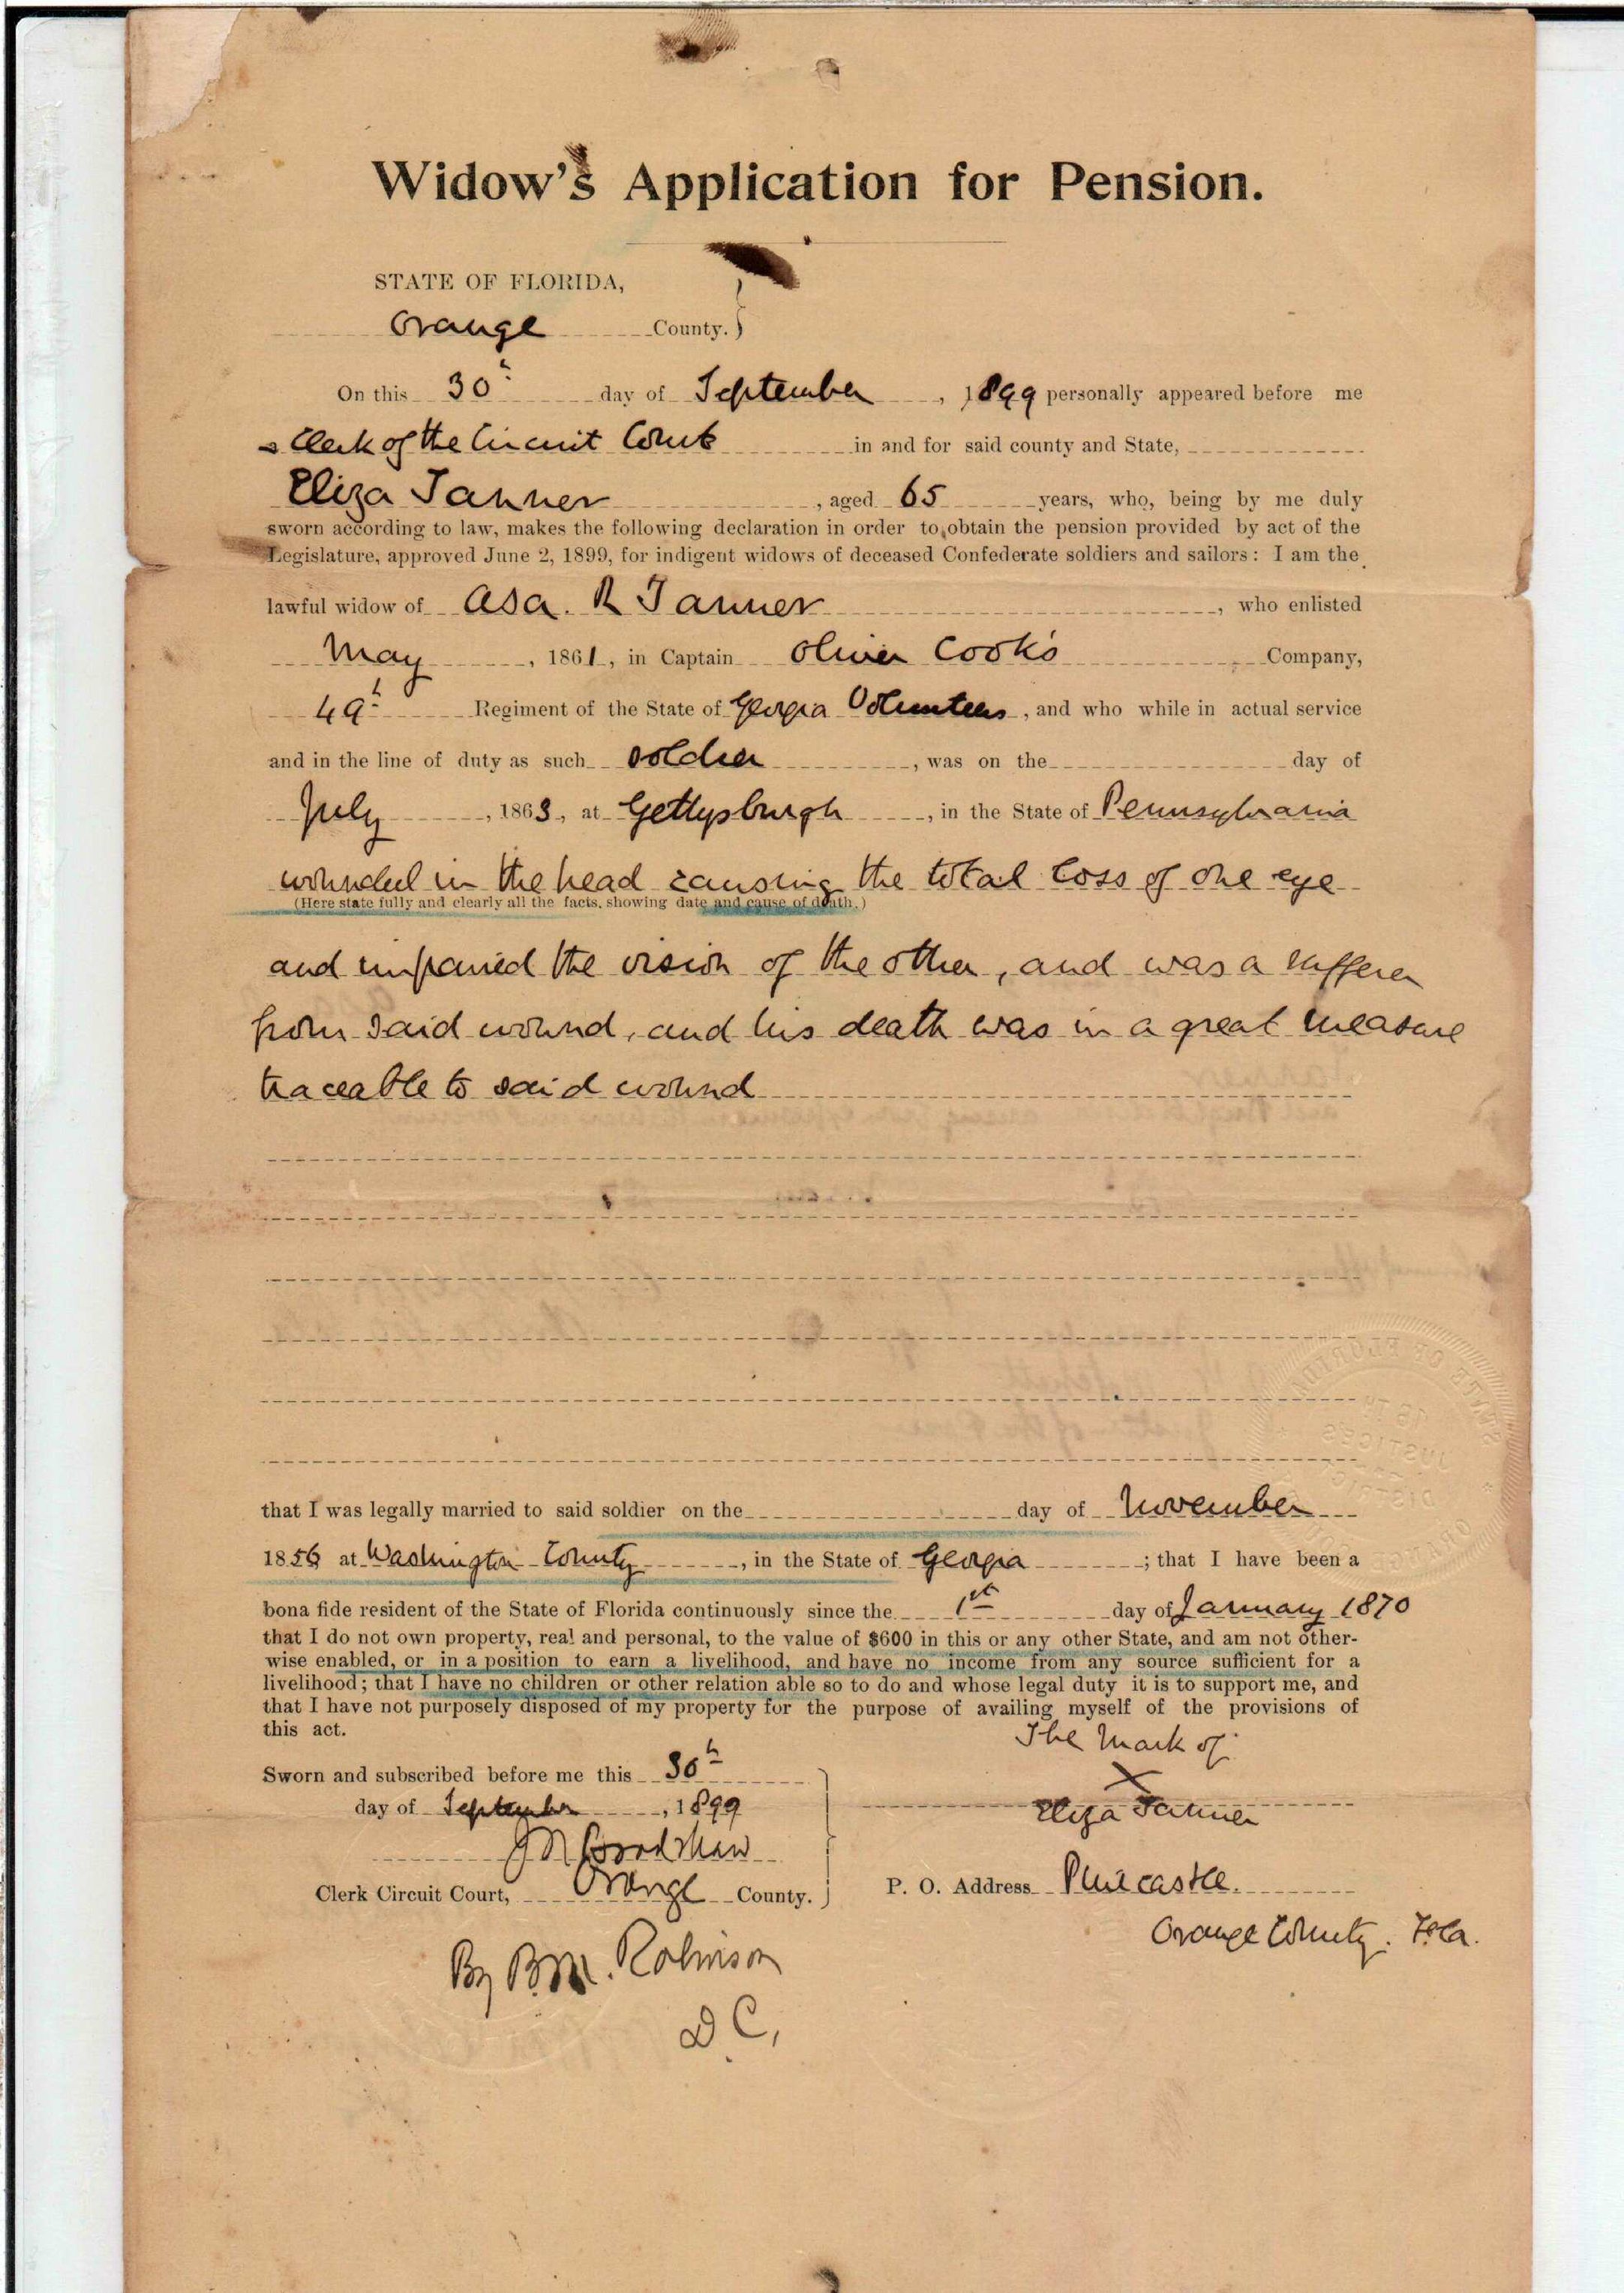 Widow's Application for Pension.
STATE OF FLORIDA,
Orange County. }
On this 30th day of September, 1899 personally appeared before me
a Clerk of the Circuit Court in and for said county and State,
Eliza Tanner, aged 65 years, who, being by me duly
sworn according to law, makes the following declaration in order to obtain the pension provided by act of the
Legislature, approved June 2, 1899, for indigent widows of deceased Confederate soldiers and sailors: I am the
lawful widow of Asa. R Tanner, who enlisted
May, 1861, in Captain Oliver Cook's Company,
49th Regiment of the State of Georgia Volunteers, and who while in actual service
and in the line of duty as such soldier, was on the day of
July, 1863, at Gettysburgh, in the State of Pennsylvania
wounded in the head causing the total loss of one eye
(Here state fully and clearly all the facts, showing date and cause of death.)
and impaired the vision of the other, and was a sufferer
from said wound, and his death was in a great measure
traceable to said wound
that I was legally married to said soldier on the day of November
1856 at Washington County, in the State of Georgia; that I have been a
bona fide resident of the State of Florida continuously since the 1st day of January 1870
that I do not own property, real and personal, to the value of $600 in this or any other State, and am not other-
wise enabled, or in a position to earn a livelihood, and have no income from any source sufficient for a
livelihood; that I have no children or other relation able so to do and whose legal duty it is to support me, and
that I have not purposely disposed of my property for the purpose of availing myself of the provisions of
this act.
The Mark of
Sworn and subscribed before me this 30th
X
day of September, 1899
Eliza Tanner
J M Bradshaw
Clerk Circuit Court, Orange County. }
P. O. Address Pinecastle.
Orange County. Fla.
By B.M. Robinson
D.C.
STATE OF FLORIDA
JUSTICES
DISTRICT